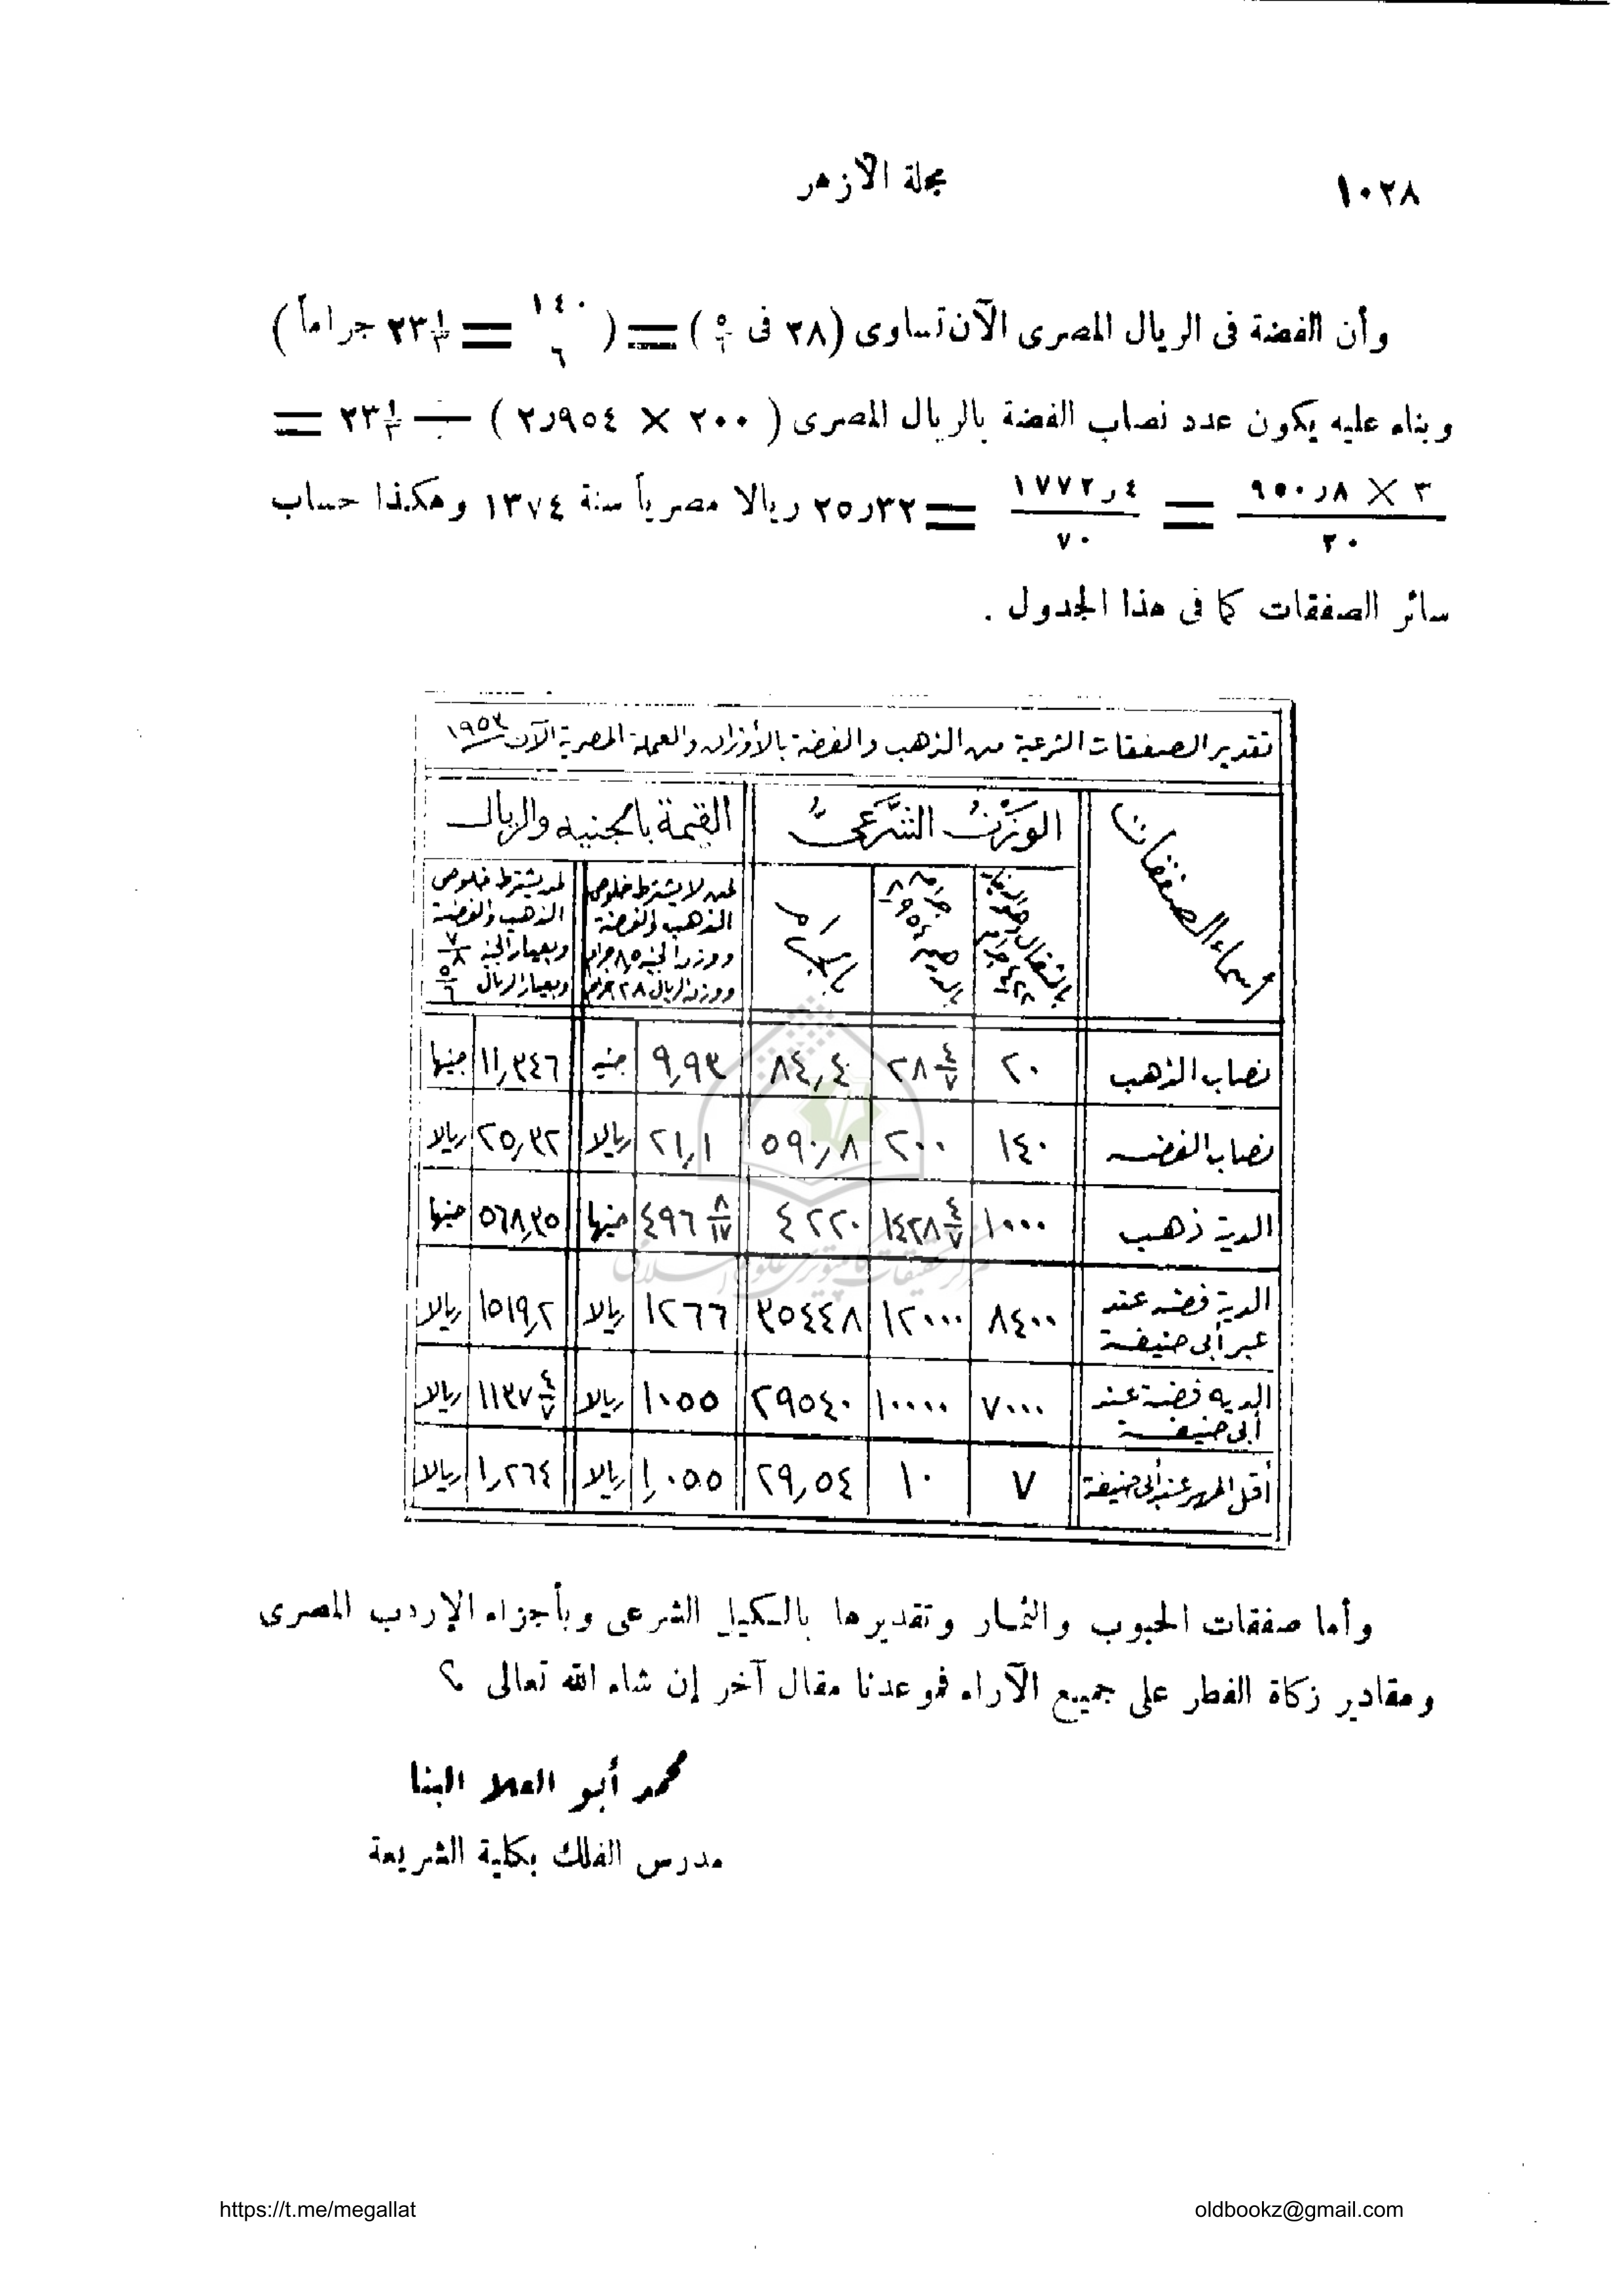 ١٠٢٨
مجلة الازهر
وأن الفضة فى الريال المصرى الآن تساوى (٢٨ فى ٥/٦) = (١٤٠/٦ = ٢٣ ١/٣ جراماً)
وبناء عليه يكون عدد نصاب الفضة بالريال المصرى ( ٢٠٠ × ٢٫٩٥٤ ) ÷ ٢٣ ١/٣ =
٣ × ٥٩٠٫٨ / ٧٠ = ١٧٧٢٫٤ / ٧٠ = ٢٥٫٣٢ ريالا مصرياً سنة ١٣٧٤ وهكذا حساب
سائر الصفقات كما فى هذا الجدول .
تقدير الصفقات الشرعية من الذهب والفضة بالأوزان والعملة المصرية الآن ١٩٥٣
أسماء الصفقات
الوزن الشرعى
القيمة بالجنيه والريال
بالمثقال وهو الدينار ٤٫٢٢ جرام
بالدرهم ٢٫٩٥٤ جرام
بالجرام
لمن لا يشترط خلوص الذهب والفضة ووزن الجنيه ٨٫٥ جرام ووزن الريال ٢٨ جرام
لمن يشترط خلوص الذهب والفضة وبعيار الجنيه ٧/٨ وبعيار الريال ٥/٦
نصاب الذهب ٢٠ ٢٨ ٤/٧ ٨٤٫٤ ٩٫٩٣ جنيه ١١٫٣٤٦ جنيها
نصاب الفضة ١٤٠ ٢٠٠ ٥٩٠٫٨ ٢١٫١ ريالا ٢٥٫٣٢ ريالا
الدية ذهب ١٠٠٠ ١٤٢٨ ٤/٧ ٤٢٢٠ ٤٩٦ ٨/١٧ جنيها ٥٦٨٫٣٥ جنيها
الدية فضة عند غير أبى حنيفة ٨٤٠٠ ١٢٠٠٠ ٣٥٤٤٨ ١٢٦٦ ريالا ١٥١٩٫٢ ريالا
الدية فضة عند أبى حنيفة ٧٠٠٠ ١٠٠٠٠ ٢٩٥٤٠ ١٠٥٥ ريالا ١١٣٧ ٤/٧ ريالا
أقل المهر عند أبى حنيفة ٧ ١٠ ٢٩٫٥٤ ١٫٠٥٥ ريالا ١٫٢٦٤ ريالا
وأما صفقات الحبوب والثمار وتقديرها بالكيل الشرعى وبأجزاء الإردب المصرى
ومقادير زكاة الفطر على جميع الآراء فموعدنا مقال آخر إن شاء الله تعالى ؟
محمد أبو العلا البنا
مدرس الفلك بكلية الشريعة
https://t.me/megallat
oldbookz@gmail.com